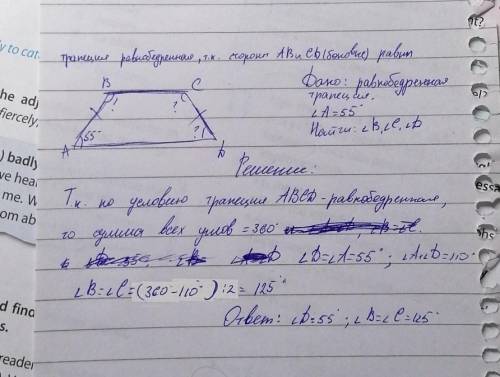 трапеция равнобедренная, т.к. стороны AB и CD (боковые) равны
B C
? ?
55° ?
A D
Дано: равнобедренная
трапеция.
∠A=55°
Найти: ∠B, ∠C, ∠D
Решение:
Т.к. по условию трапеция ABCD - равнобедренная,
то сумма всех углов = 360°
∠D=∠A=55°; ∠A+∠D=110°
∠B=∠C=(360-110°):2=125°
Ответ: ∠D=55°; ∠B=∠C=125°
y to cat
he adj
fiercely,
) badly
ve hear
me. W
om ab
d find
s.
reader